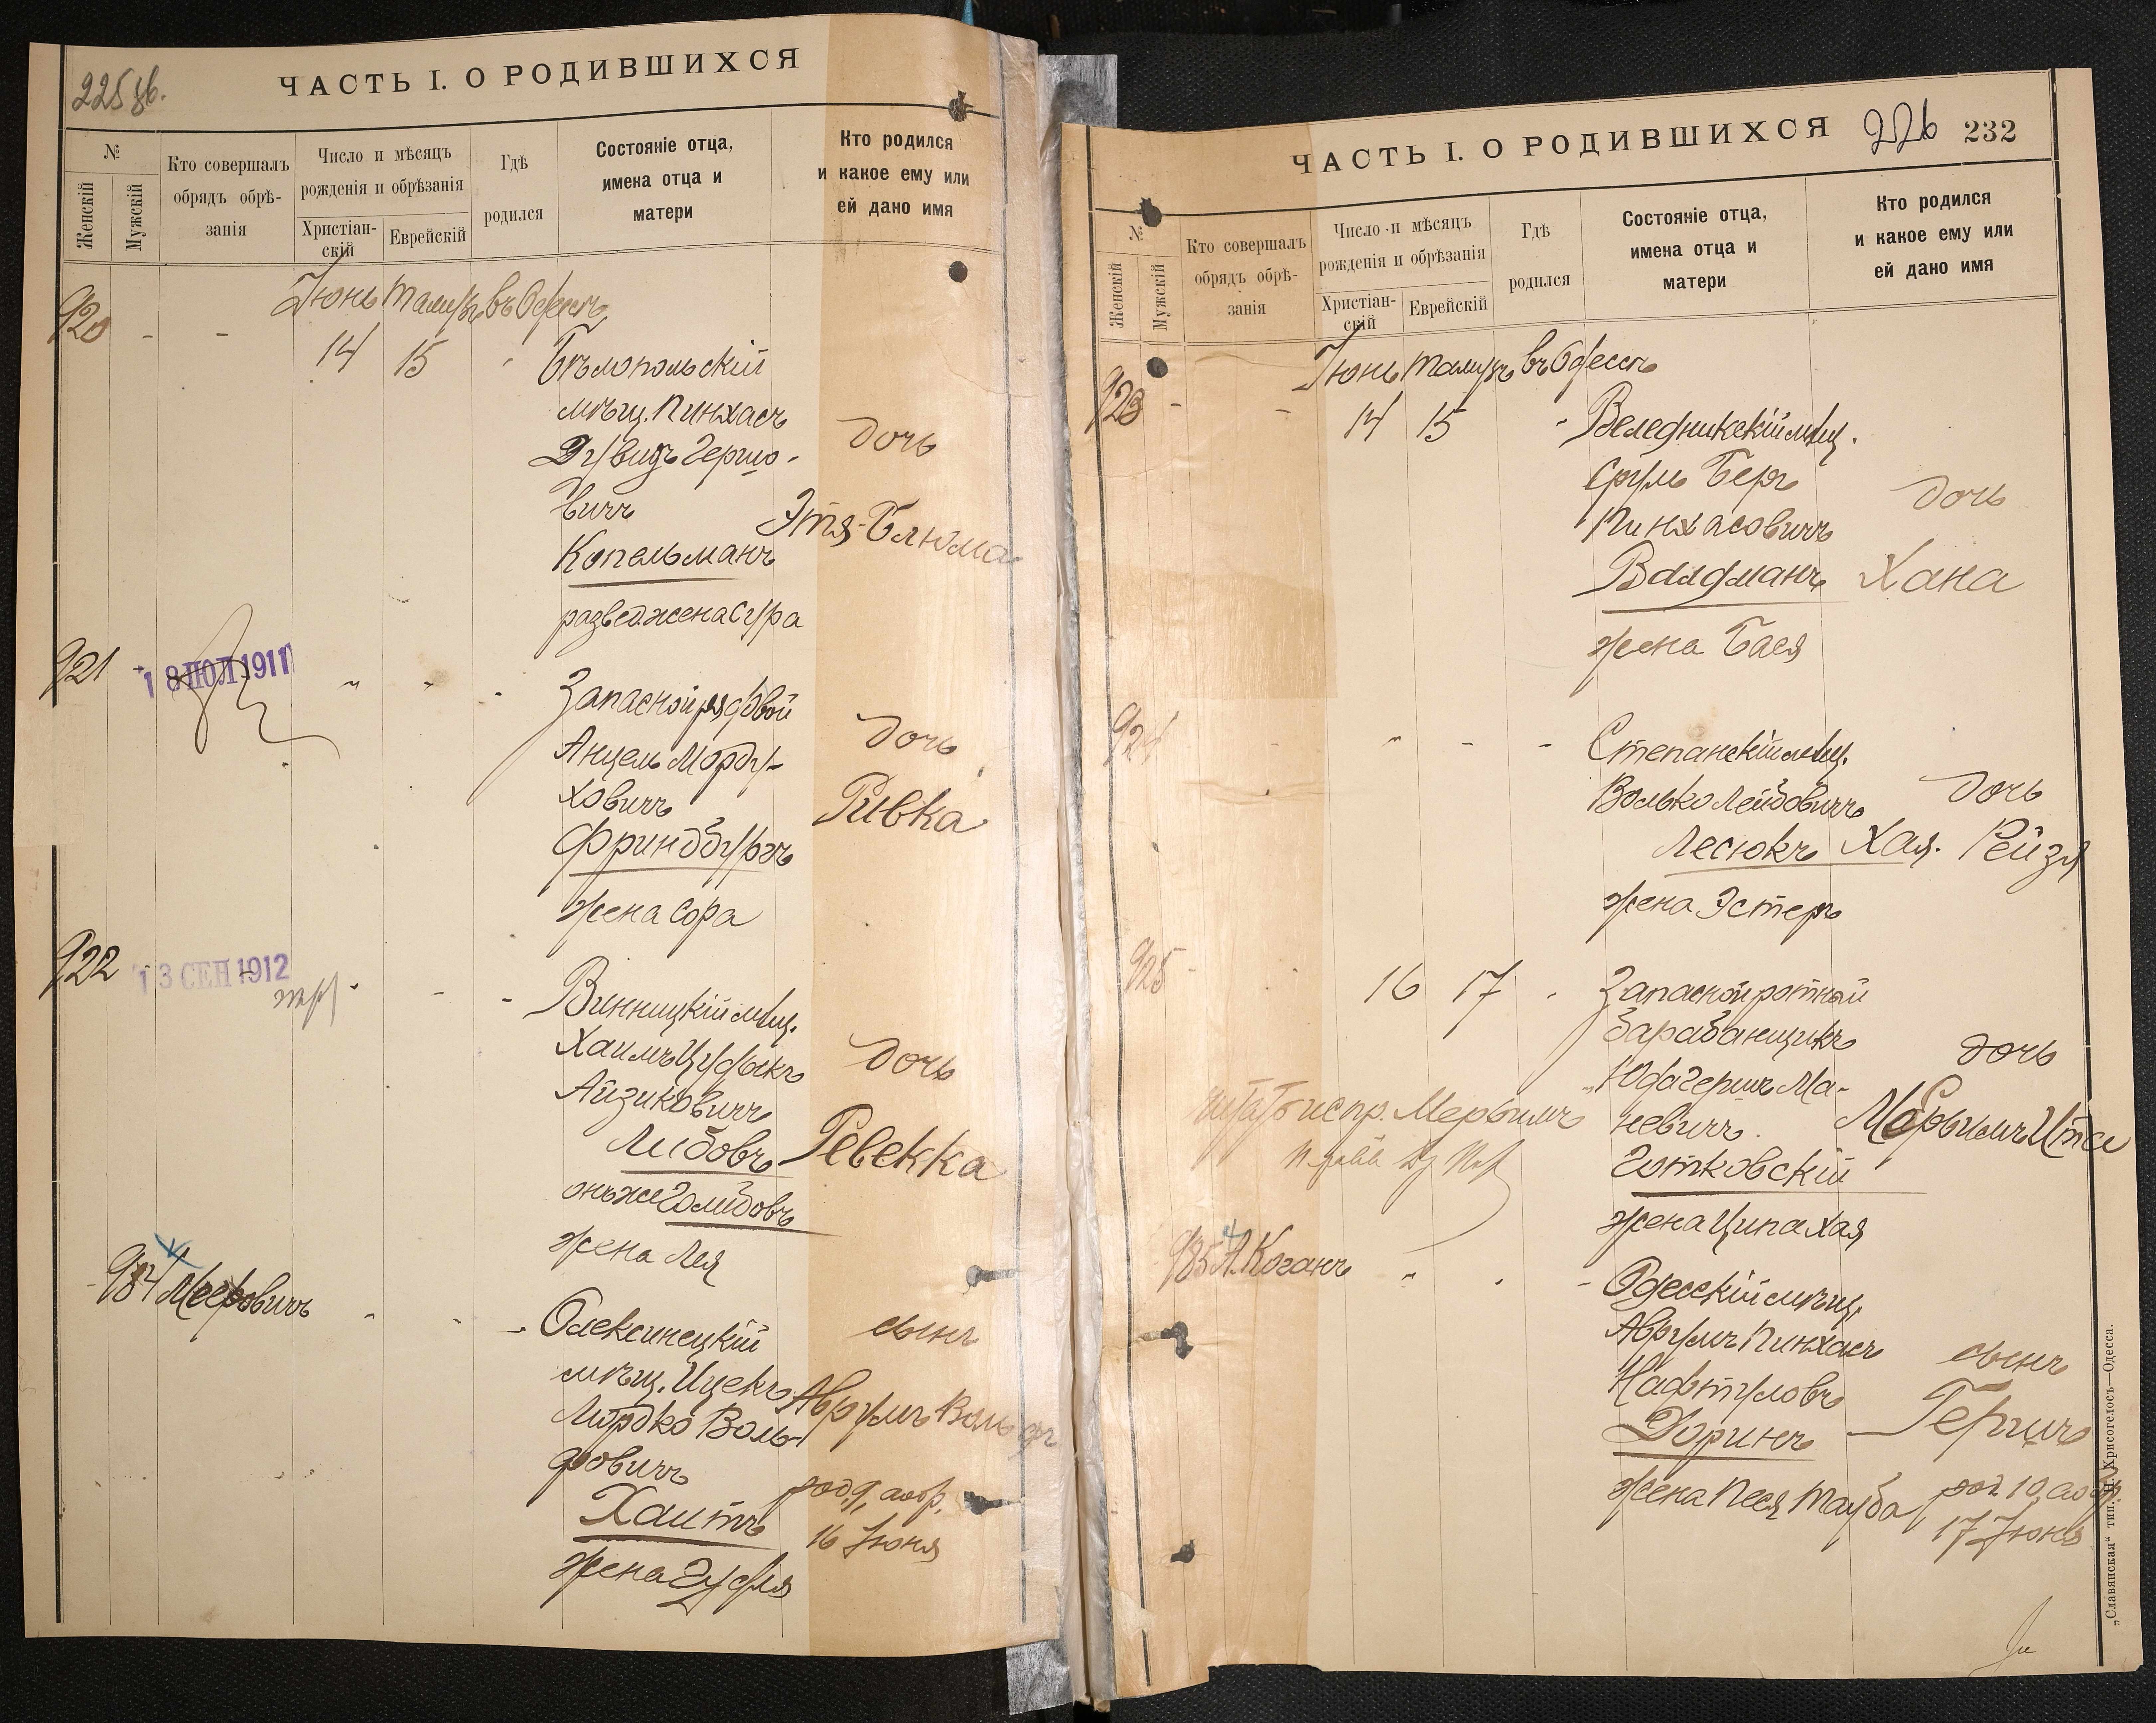 225 об.
ЧАСТЬ I. О РОДИВШИХСЯ
№
Женскій
Мужскій
Кто совершалъ
обрядъ обрѣ-
занія
Число и мѣсяцъ
рожденія и обрѣзанія
Христіан-
скій
Еврейскій
Гдѣ
родился
Состояніе отца,
имена отца и
матери
Кто родился
и какое ему или
ей дано имя
Іюнь Тамузъ въ Одессѣ
920 - - 14 15 "
Бѣлопольскій
мѣщ. Пинхасъ
Дувидъ Гершо-
вичъ
Копельманъ
развед. жена Сура
дочь
Этя-Блюма
921 - " " -
18 ІЮЛ 1911
Запасной рядовой
Анцель Морду-
ховичъ
Фриндбургъ
жена Сора
дочь
Ривка
922 - - -
13 СЕН 1912
Винницкій мѣщ.
Хаимъ Цудыкъ
Айзиковичъ
Либовъ
онъ же Голибовъ
жена Лея
дочь
Ревекка
984 Мееровичъ " " -
Олексинецкій
мѣщ. Ицекъ
Мордко Воль-
фовичъ
Хаитъ
жена Эудля
сынъ
Аврумъ Вольфъ
род. 9, а обр.
16 Іюня
226 232
ЧАСТЬ I. О РОДИВШИХСЯ
№
Женскій
Мужскій
Кто совершалъ
обрядъ обрѣ-
занія
Число и мѣсяцъ
рожденія и обрѣзанія
Христіан-
скій
Еврейскій
Гдѣ
родился
Состояніе отца,
имена отца и
матери
Кто родился
и какое ему или
ей дано имя
Іюнь Тамузъ въ Одессѣ
923 - - 14 15 -
Веледникскій мѣщ.
Сруль Беръ
Пинхасовичъ
Валдманъ
жена Бася
дочь
Хана
924 - " - -
Степанскій мѣщ.
Волько Лейбовичъ
Лесюкъ
жена Эстеръ
дочь
Хая-Рейзя
925 - 16 17 "
Запасной ротный
барабанщикъ
Юда Гершъ Ма-
невичъ
Готковскій
жена Ципа Хая
дочь
Мерьимъ Ита
читать испр. Мерьимъ
985 А. Коганъ " " -
Одесскій мѣщ.
Аврумъ Пинхасъ
Нафтуловъ
Доринъ
жена Песя Тауба
сынъ
Гершъ
род. 10, а обр.
17 Іюня
„Славянская“ тип. Н. Хрисогелосъ—Одесса.